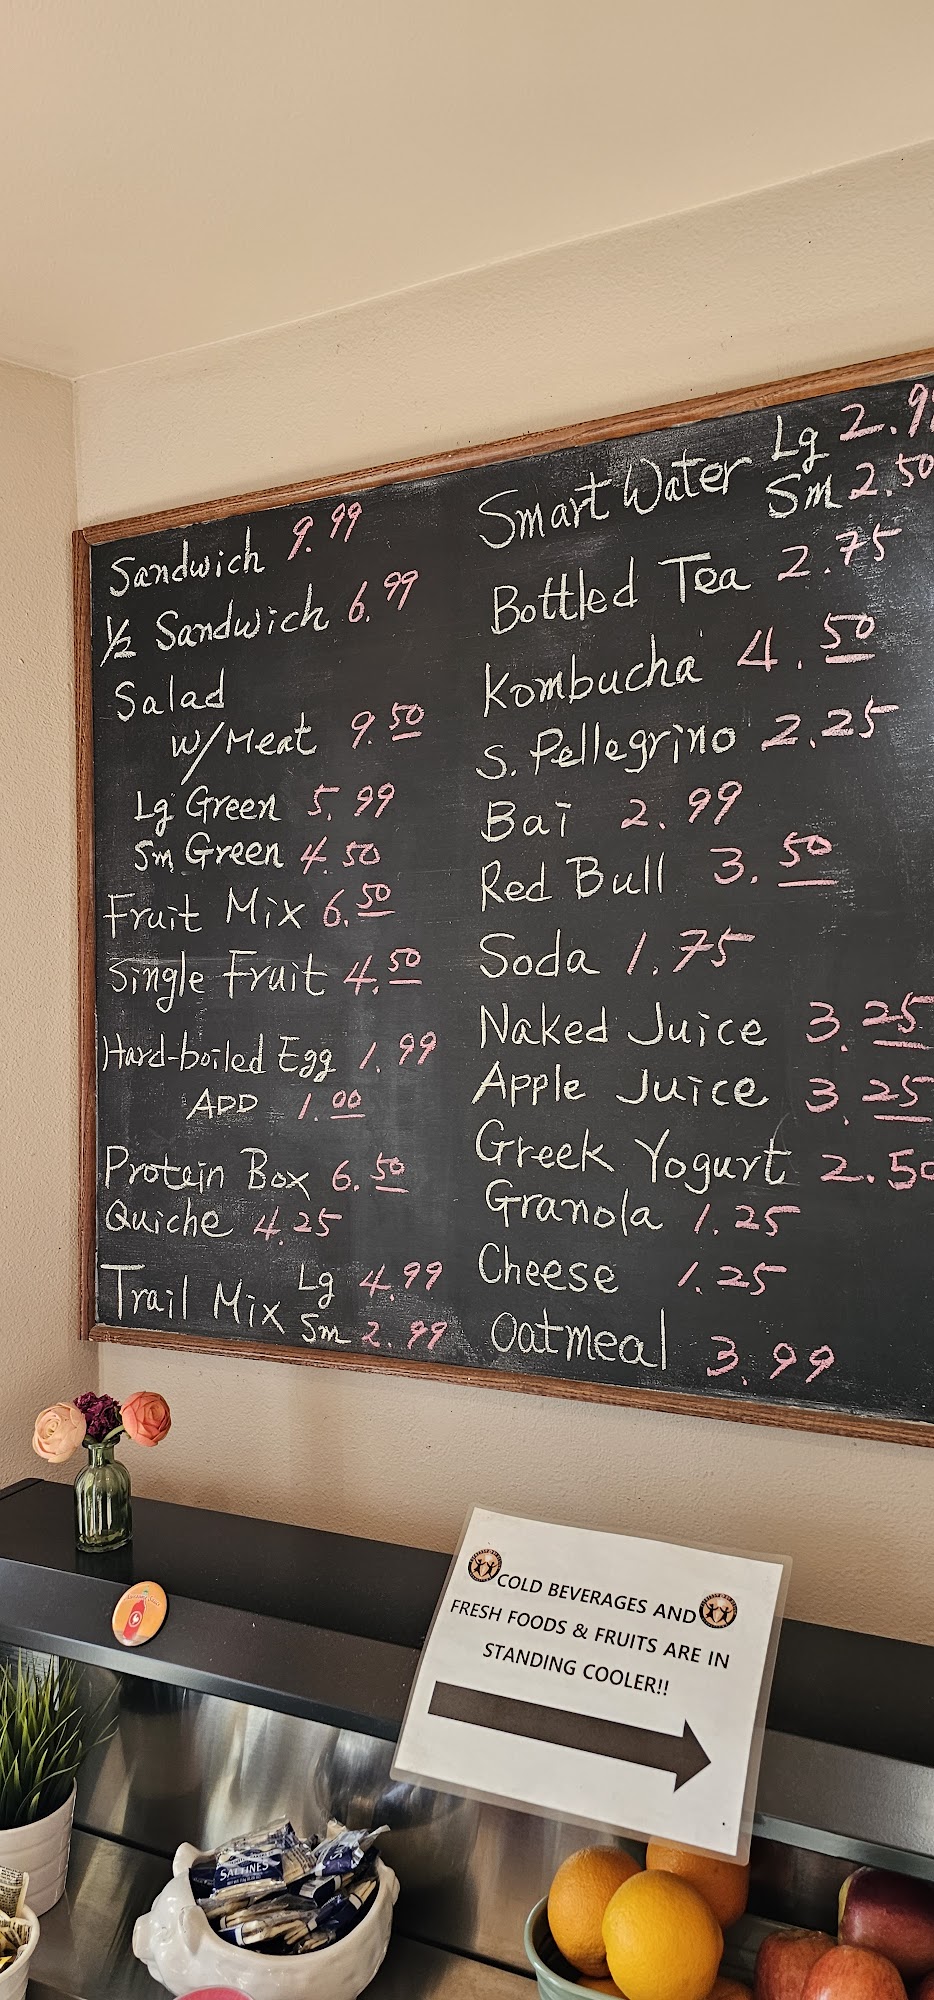 Sandwich 9.99
½ Sandwich 6.99
Salad
w/Meat 9.50
Lg Green 5.99
Sm Green 4.50
Fruit Mix 6.50
Single Fruit 4.50
Hard-boiled Egg 1.99
ADD 1.00
Protein Box 6.50
Quiche 4.25
Trail Mix Lg 4.99
Sm 2.99
Smart Water Lg 2.9
Sm 2.50
Bottled Tea 2.75
Kombucha 4.50
S. Pellegrino 2.25
Bai 2.99
Red Bull 3.50
Soda 1.75
Naked Juice 3.25
Apple Juice 3.25
Greek Yogurt 2.50
Granola 1.25
Cheese 1.25
Oatmeal 3.99
COLD BEVERAGES AND
FRESH FOODS & FRUITS ARE IN
STANDING COOLER!!
SALTINES